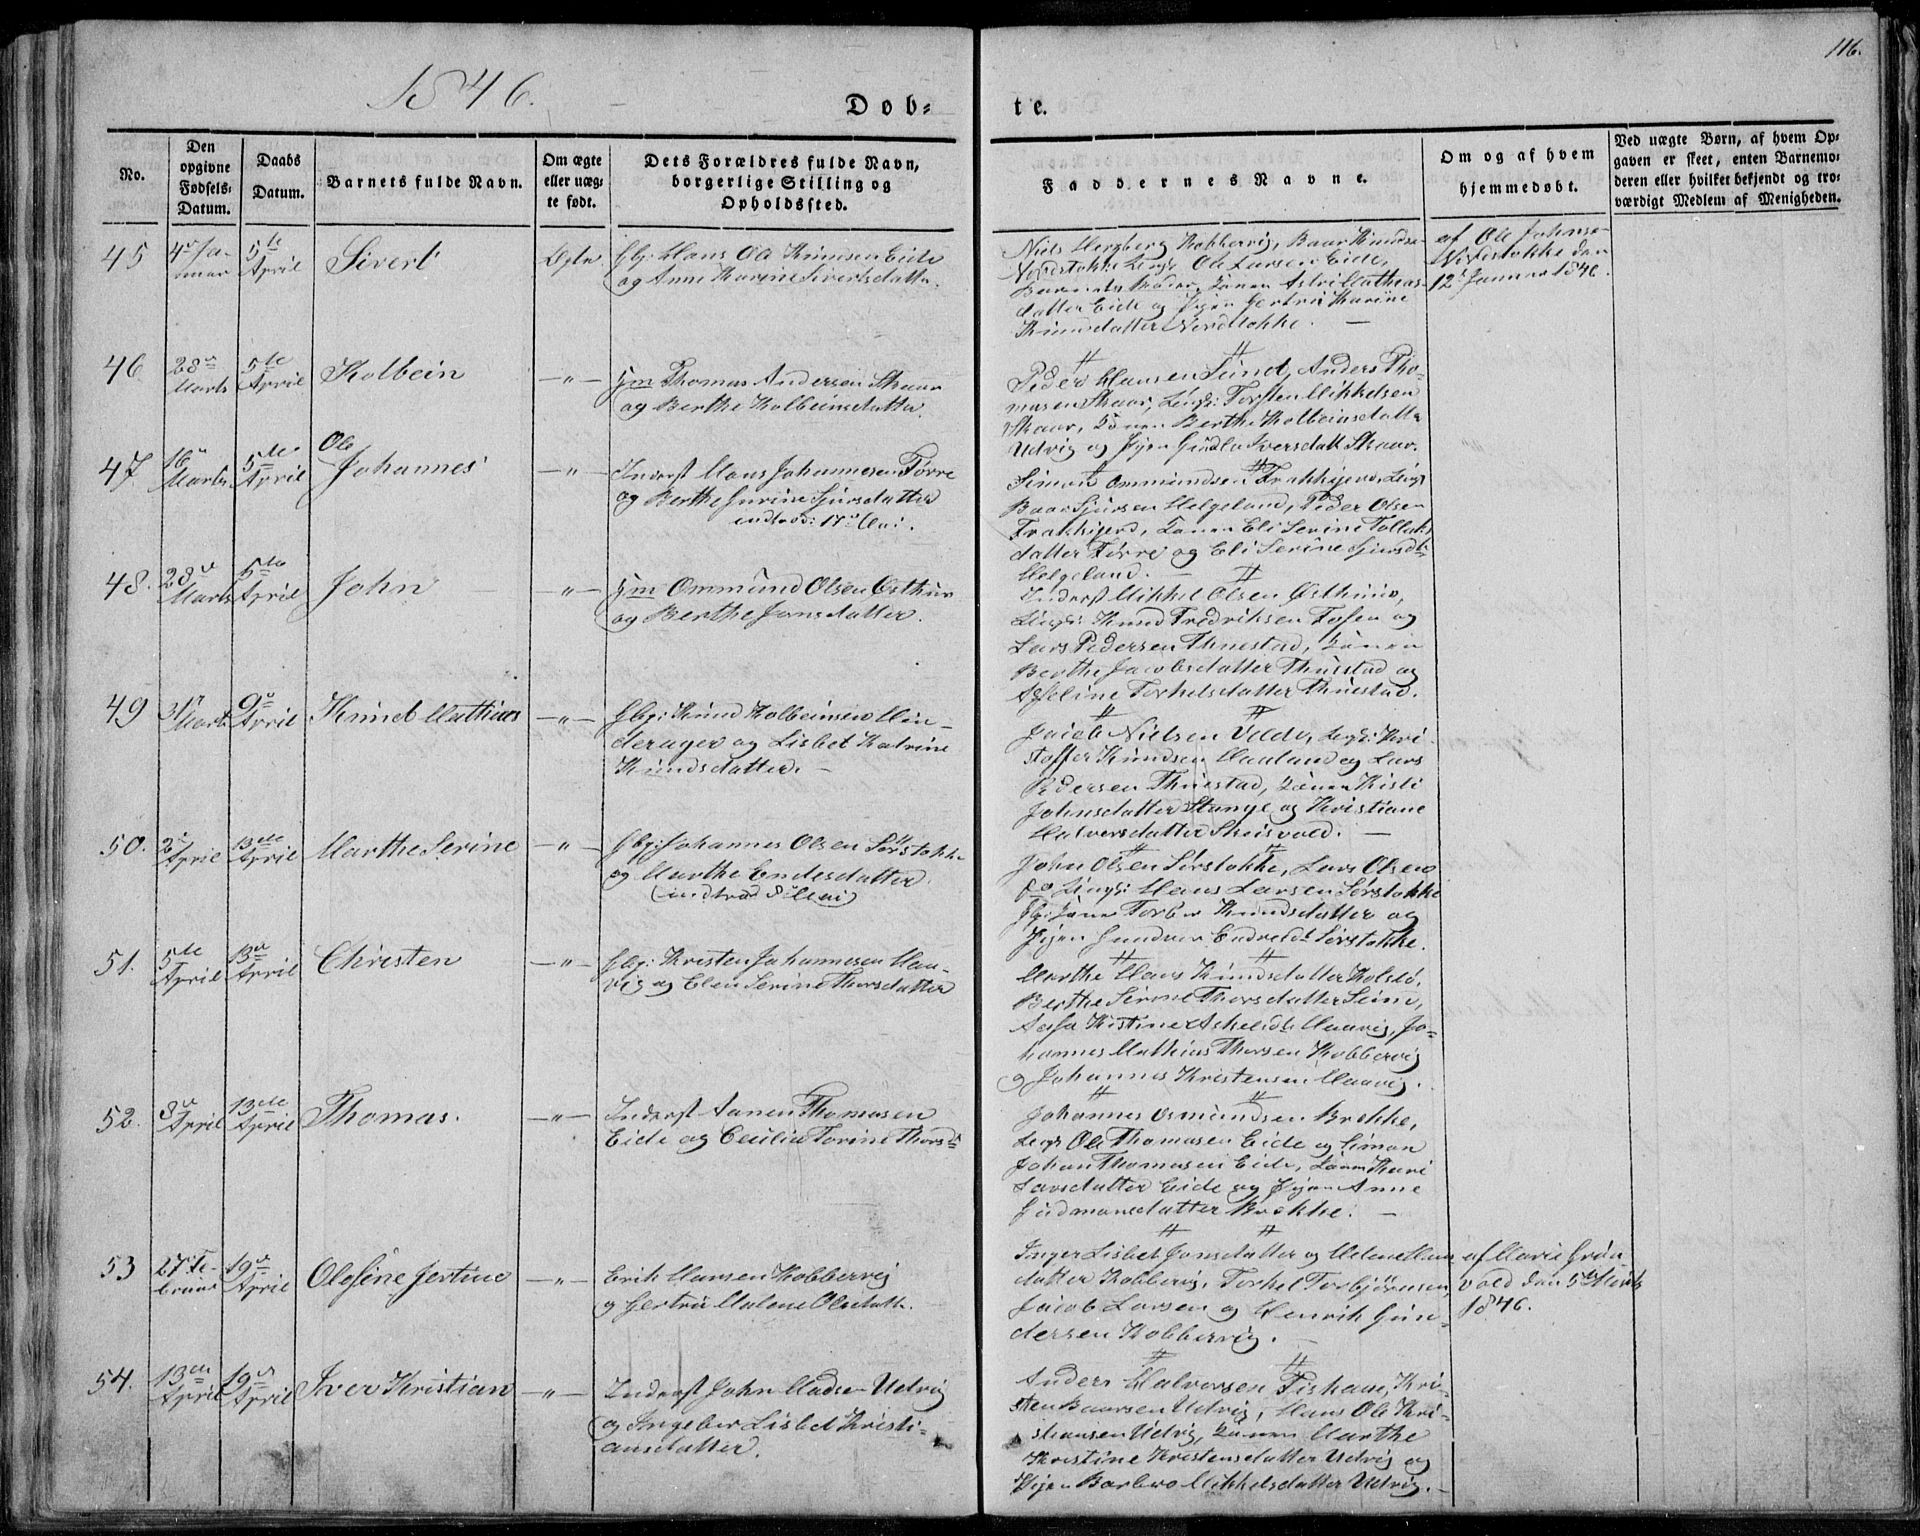 116.
1846.
Døb-
te.
No.
Den
opgivne
Fødsels-
Datum.
Daabs
Datum.
Barnets fulde Navn.
Om ægte
eller uæg-
te født.
Dets Forældres fulde Navn,
borgerlige Stilling og
Opholdssted.
Faddernes Navne.
Om og af hvem
hjemmedøbt.
Ved uægte Børn, af hvem Op-
gaven er skeet, enten Barnemo-
deren eller hvilket bekjendt og tro-
værdigt Medlem af Menigheden.
45
5te
April
Sivert
Hans Ole Knudsen Eide
og Anne Karine Sivertsdatter.
Niels Hergberg Kobbervig, Baar Knuds-
Ole Larsen Eide,
Astri Mathias-
datter Eide og Pigen Gertru Karine
Knudsdatter Nordstokke. —
af Ole Johns-
den
12 Januar 1846.
46
28
Marts
5te
April
Kolbein
—"—
Gm Thomas Andersen Skaar
og Berthe Kolbeinsdatter.
Peder Hansen Sund, Anders Tho-
masen Skaar, Ungk: Torsten Mikkelsen
Skaar, Konen Berthe Kolbeinsdatter
Udvig og Pigen Iversdatt Skaar.
47
16
Marts
5te
April
Ole
Johannes
—"—
Inderst Hans Johannesen Førre
og Berthe Gurine Sjursdatter
indtraad: 17 Mai.
Simon Ommundsen Frakkjern, Ungk
Baar Sjursen Helgeland, Peder Olsen
Frakkjerd, Konen Eli Serine Tollak-
datter Førre og Eli Serine Sjursdt
Helgeland. —
48.
28
Marts
5te
April
John
—"—
Gm Ommund Olsen Østhus
og Berthe Jonsdatter.
Inderst Mikkel Olsen Østhuus,
Ungk: Knud Fredriksen Fosen og
Lars Pedersen Thuestad, Konen
Berthe Jacobsdatter Thuestad og
Asseline Torkelsdatter Thuestad.
49
31
Marts
9
April
Knud Mathias
—"—
Gbr: Knud Kolbeinsen Hin-
derager og Lisbet Katrine
Knudsdatter. —
Jacob Nielsen Vede, Ungk: Kri-
stoffer Knudsen Haaland og Lars
Pedersen Thuestad, Konen Kisti
Johnsdatter Stange og Kristiane
Halversdatter Skeisvold. —
50.
2
April
13de
April
Marthe Serine
—"—
Gbr: Johannes Olsen Sørstokke
og Marthe Endresdatter.
(indtraad 8 Mai)
John Olsen Sørstokke, Lars Olsen
Ungk: Hans Larsen Sørstokke
Konen Torber Knudsdatter og
Pigen Gunvor Endresdt Sørstokke.
51.
5te
April
13de
April
Christen
—"—
Gbr: Kristen Johannesen Haa-
vig og Elen Serine Thorsdatter
Marthe Hans Knudsdatter Kolstø,
Berthe Serine Thorsdatter Seim,
Aasa Kistine Askelsdt Haavig, Jo-
hannes Mathias Thorsen Kobbervig
og Johannes Kristensen Haavig.
52.
3
April
13de
April
Thomas.
—"—
Inderst Aanen Thomasen
Eide og Cecilia Torine Thorsd
Johannes Osmundsen Brekke,
Ungk Ole Thomasen Eide og Simon
Johan Thomasen Eide, Konen Kari
Larsdatter Eide og Pigen Anne
Gudmansdatter Brekke. —
53
27 Fe-
bruar
19
April
Olesine Jertine
—"—
Erik Hansen Kobbervig
og Gertru Malene Olsdatt.
Inger Lisbet Jonsdatter og Helene Hans
datter Kobbervig, Torkel Torbjørnsen,
Jacob Larsen og Henrik Gun-
dersen Kobbervig. —
af Marie Grøn
vold den 5te Marts
1846.
54.
13de
April
19
April
Iver Kristian
—"—
Inderst John Madsen Udvig
og Ingeber Lisbet Kristi-
ansdatter.
Anders Halvorsen Fiskaae, Kri-
sten Baarsen Udvig, Hans Ole Kri-
stiansen Udvig, Konen Marthe
Kristine Kristensdatter Udvig og
Pigen Barbro Mikkelsdatter Udvig. —